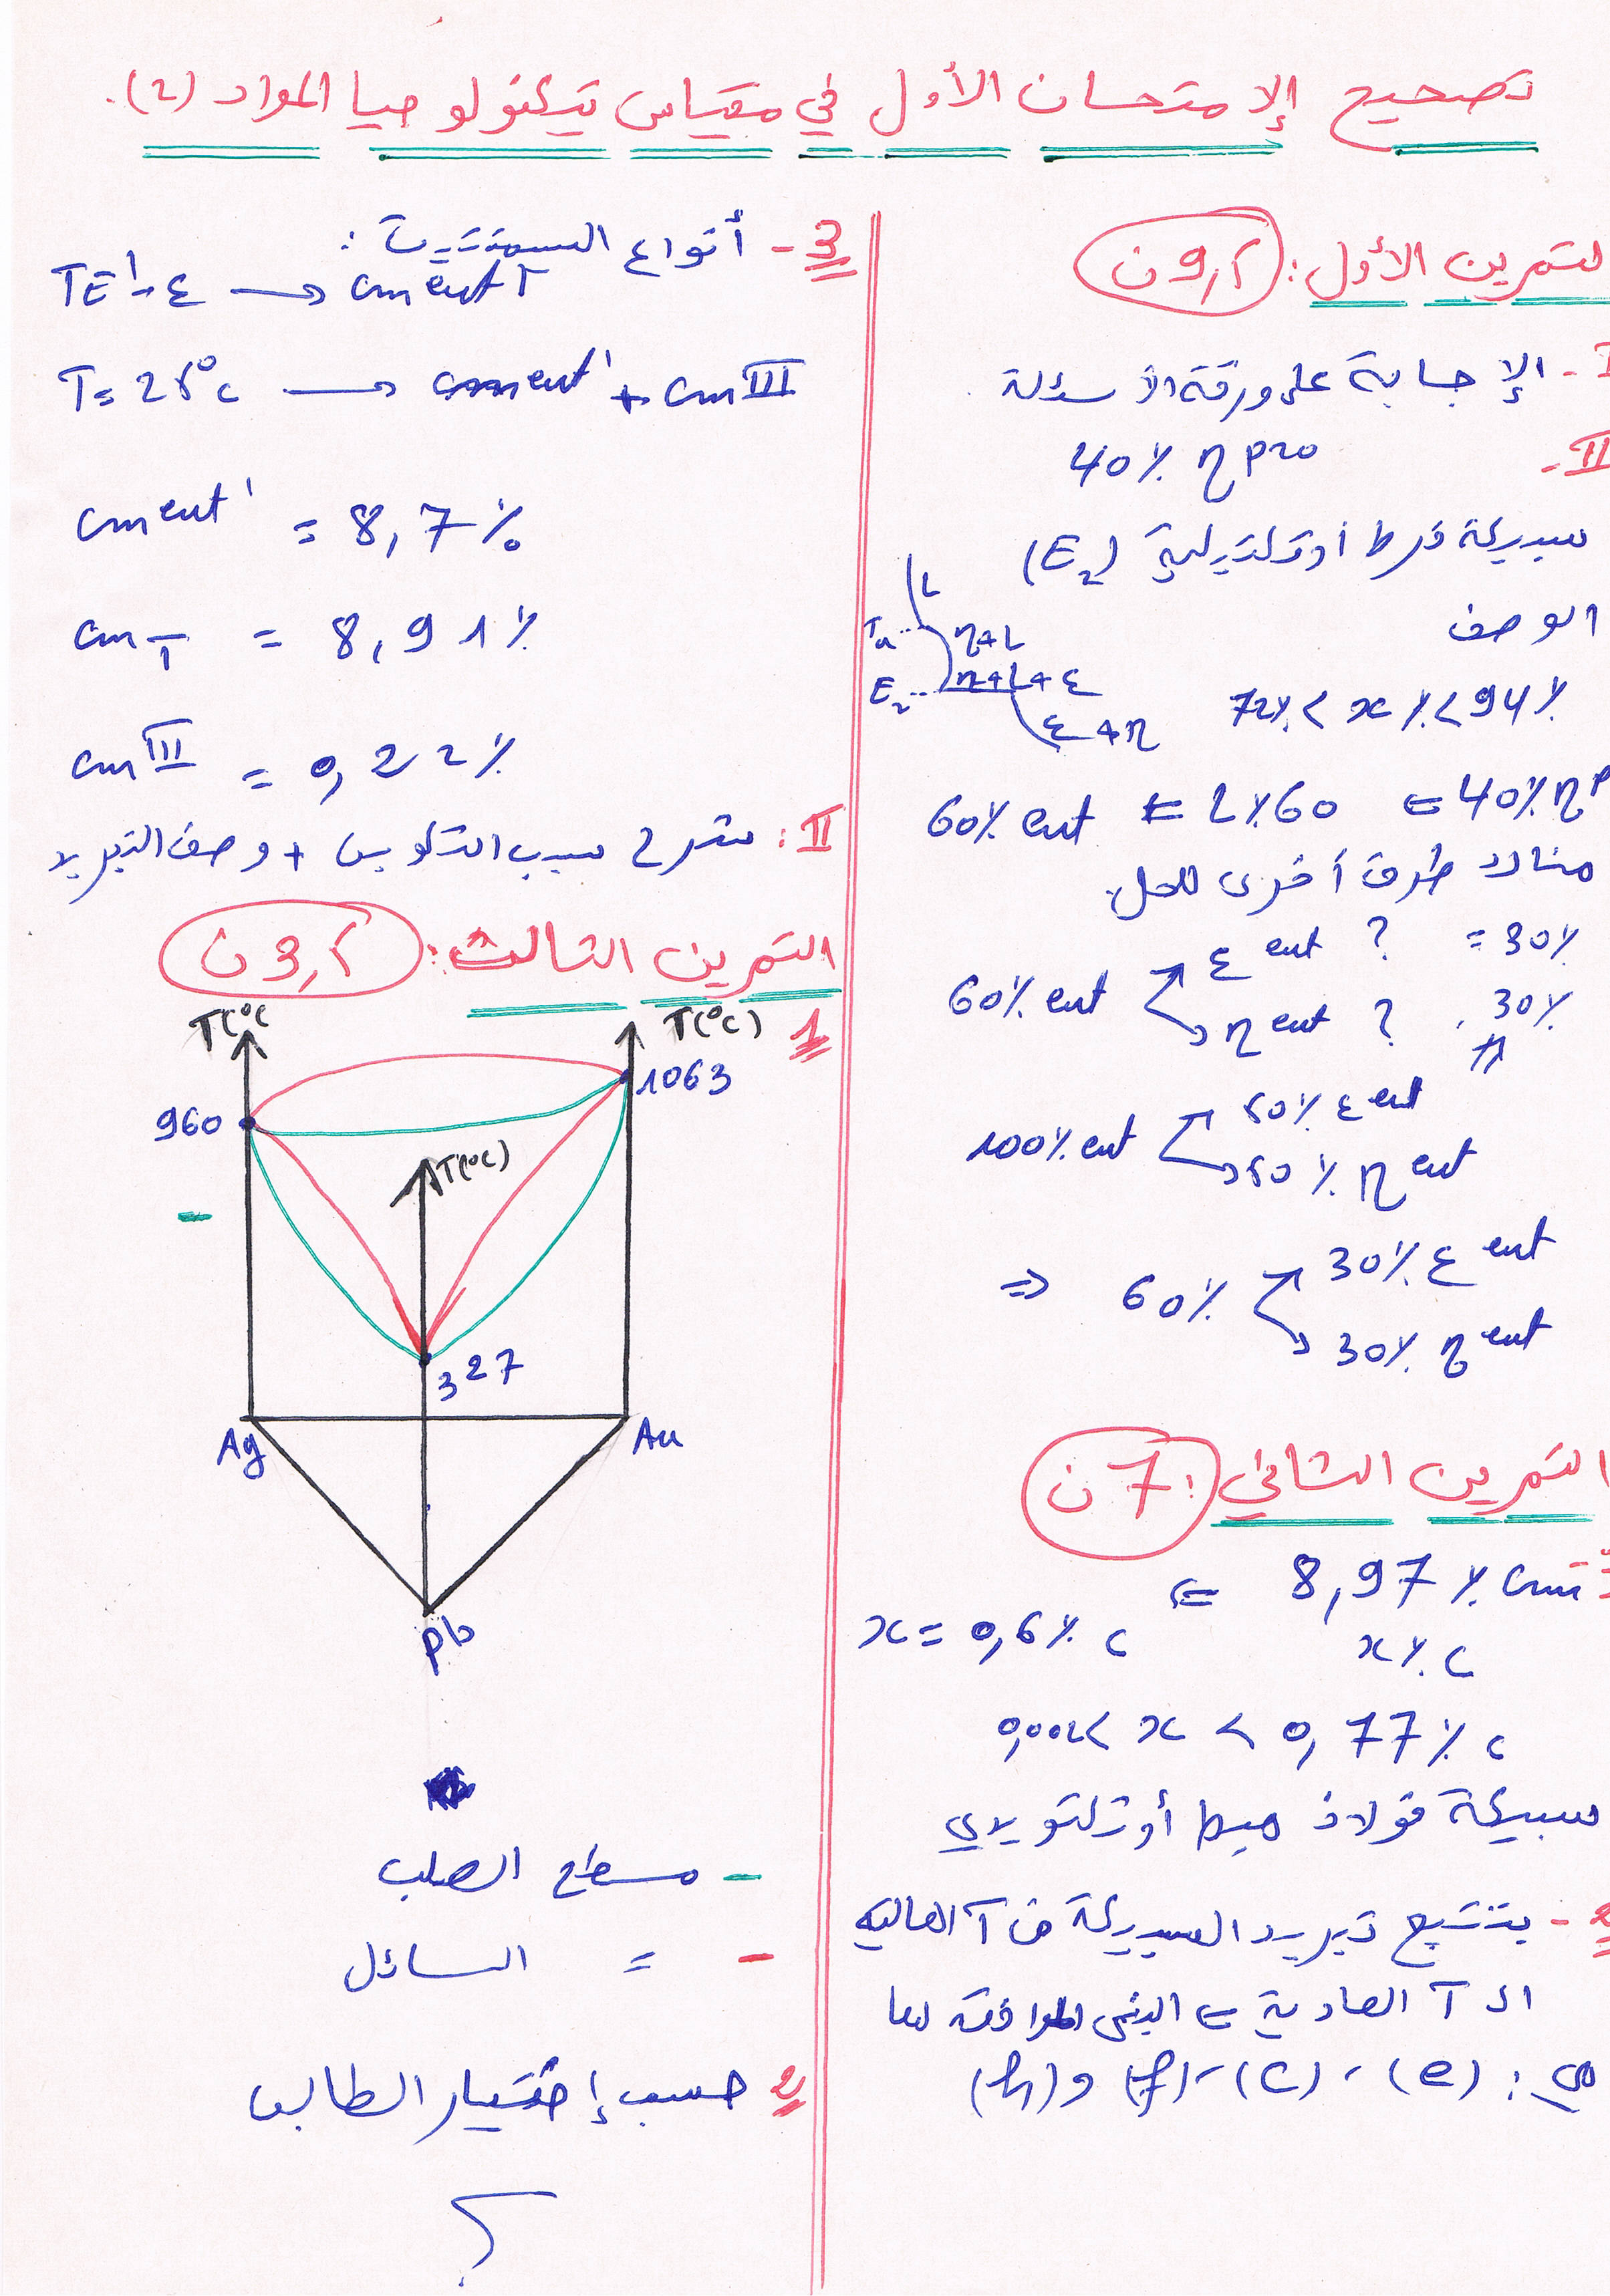 تصحيح الإمتحان الأول في مقياس تيكنولوجيا المواد (2).
التمرين الأول: 9,5 ن
I - الإجابة على ورقة الأسئلة.
II - 40% η pro
سبيكة فرط أوتكتيكية (E2)
الوصف
L
η+L
E2 η+L+ε
ε+η
72% < x% < 94%
40% η P ⇐ L%60 ⇐ 60% eut
هناك طرق أخرى للحل.
60% eut
ε eut ? = 30%
η eut ? 30%
100% eut
50% ε eut
50% η eut
⇒ 60%
30% ε eut
30% η eut
التمرين الثاني: 7 ن
8,97 % cm ⇐
x% c
x = 0,6% c
0,002 < x < 0,77% c
سبيكة فولاذ هيبو أوتكتويدي
2 - يتتبع تبريد السبيكة من T العالية
الى T العادية ⇐ البنى الموافقة لها
هي: (e) ، (c) ، (f) و (h)
3 - أنواع السمنتيت:
TE'-ε → cment I
T = 25°c → cment' + cm III
cment' = 8,7%
cm I = 8,91%
cm III = 0,22%
II: شرح سبب التكوين + وصف التبريد
التمرين الثالث: 3,5 ن
1
T(°c
T(°c)
1063
960
T(°c)
327
Ag
Au
Pb
- مسطح الصلب
- = السائل
2 حسب إختيار الطالب